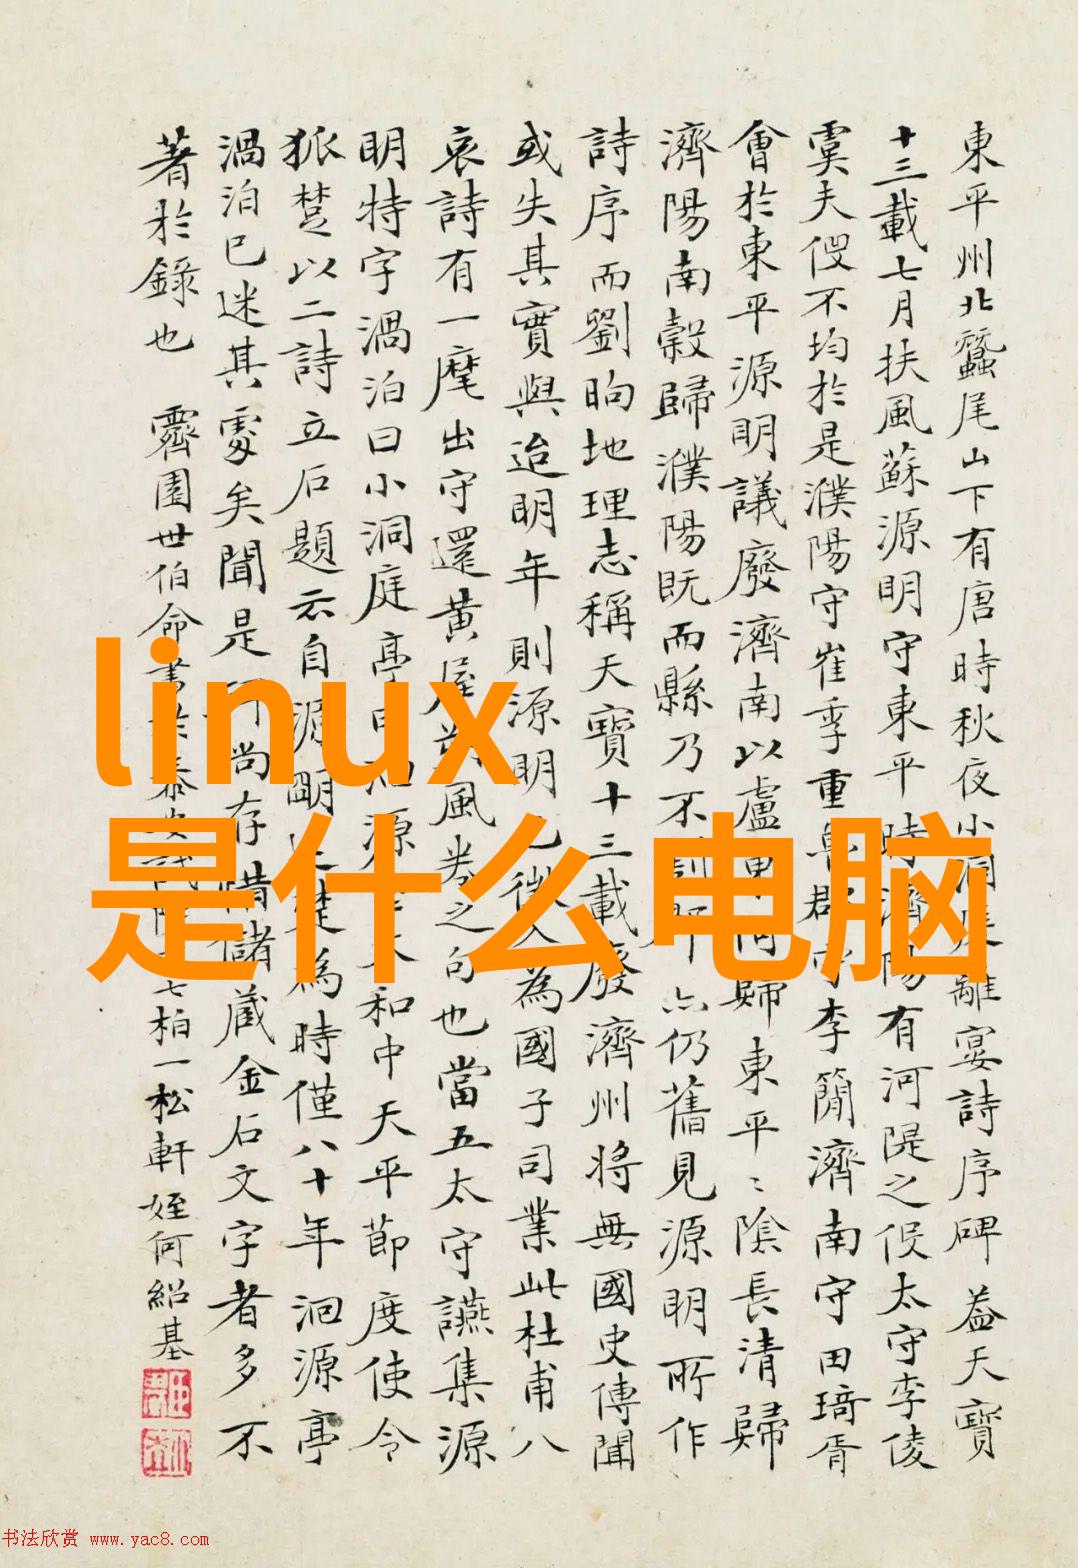 東平州北蠶尾山下有唐時秋夜小洞庭離宴詩序碑蓋天寶
十三載七月扶風蘇源明守東平時濟陽有河隄之役太守李倰
虞夫役不均於是濮陽守崔季重魯郡守李簡濟南守田琦胥
會於東平源明議廢濟南以盧東阿歸東平﹦陰長清歸
濟陽南穀歸濮陽既而縣乃不割郡亦仍舊見源明所作
詩序而劉昫地理志稱天寶十三載廢濟州將無國史傳聞
或失其實與迨明年則源明已徵入為國子司業此杜甫八
哀詩有一麾出守還黃屋朔風卷之句也當五太守讌集源
明特字渦泊曰小洞庭亭曰洄源太和中天平節度使令
狐楚以二詩立石題云自源明迄楚為時僅八十年洄源亭
渦泊已迷其處矣聞是尚存惜儲蔵金石文字者多不
著於錄也 霽園世伯命書七柏一松軒姪何紹基
linux
是什么电脑
书法欣赏 www.yac8.com